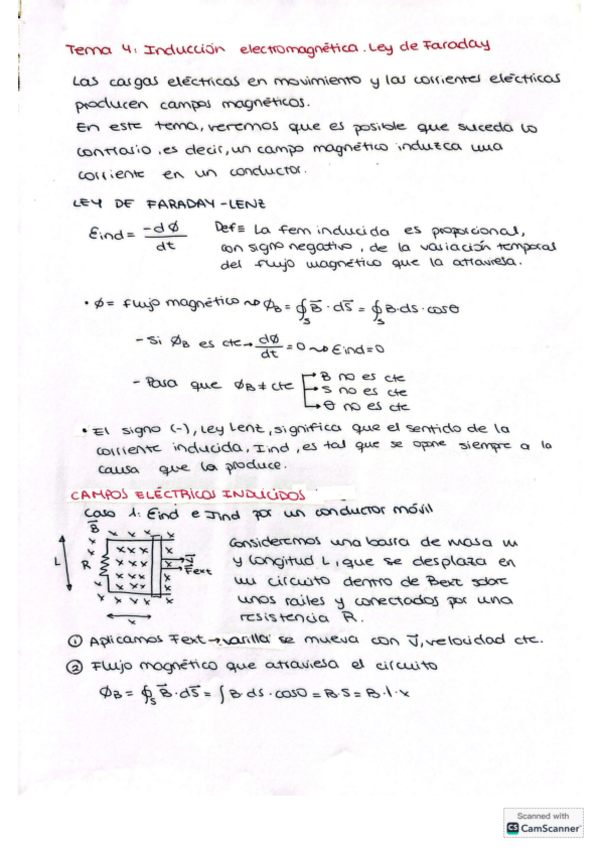 Tema 4: Inducción electromagnética. Ley de Faraday
Las cargas eléctricas en movimiento y las corrientes eléctricas
producen campos magnéticos.
En este tema, veremos que es posible que suceda lo
contrario, es decir, un campo magnético induzca una
corriente en un conductor.
LEY DE FARADAY-LENZ
Eind = -dØ/dt Def≡ La fem inducida es proporcional,
con signo negativo, de la variación temporal
del flujo magnético que la atraviesa.
• Ø = flujo magnético ⇝ ØB = ∮s B⃗ · dS⃗ = ∮s B·ds·cosθ
- Si ØB es cte → dØ/dt = 0 ⇝ Eind = 0
- Para que ØB ≠ cte → B no es cte
→ S no es cte
→ θ no es cte
• El signo (-), Ley Lenz, significa que el sentido de la
corriente inducida, Iind, es tal que se opone siempre a la
causa que la produce.
CAMPOS ELÉCTRICOS INDUCIDOS
Caso 1: Eind e Iind por un conductor móvil
B⃗
L
R
v⃗
F⃗ext
x
Consideremos una barra de masa m
y longitud L, que se desplaza en
un circuito dentro de Bext sobre
unos raíles y conectados por una
resistencia R.
① Aplicamos Fext → varilla se mueva con v⃗, velocidad cte.
② Flujo magnético que atraviesa el circuito
ØB = ∮s B⃗ · dS⃗ = ∫ B·ds·cos0 = B·S = B·l·x
Scanned with
CS CamScanner